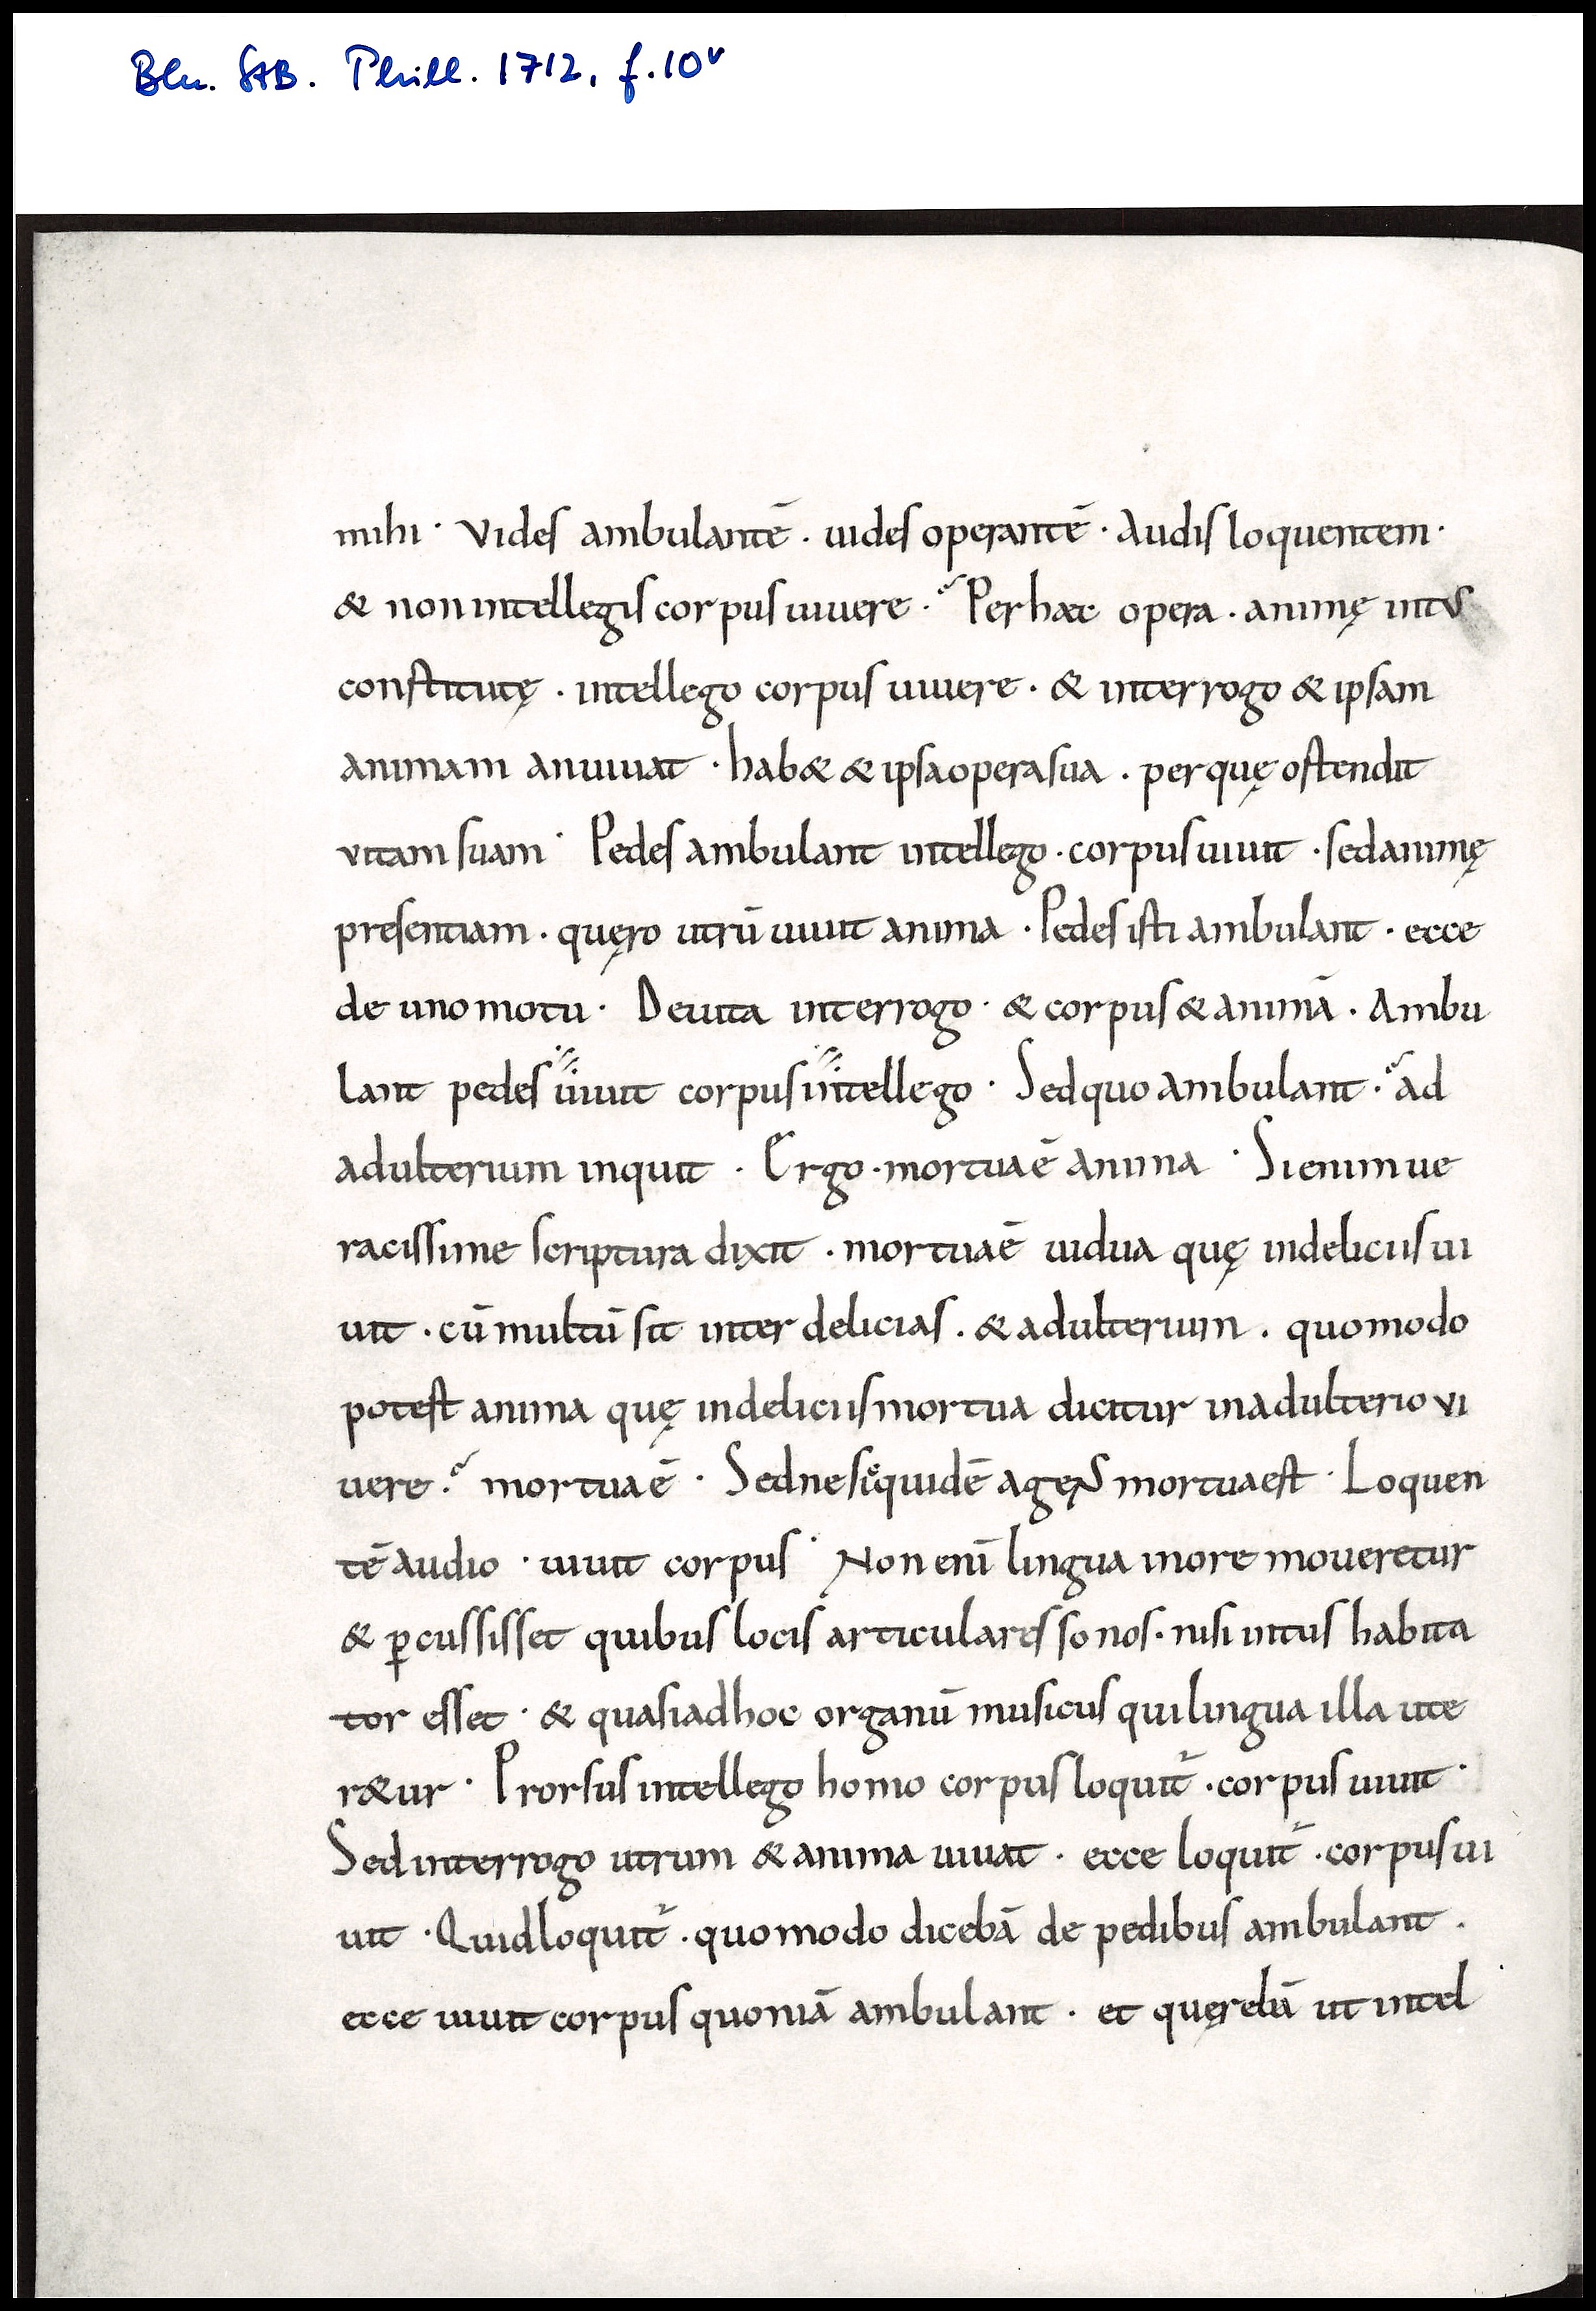 Bln. StB. Phill. 1712, f. 10v
mihi · Vides ambulantē . uides operantē · Audis loquentem ·
& non intellegis corpus uiuere ·̃ Per haec opera . animę intus
constitutę · intellego corpus uiuere · & interrogo & ipsam
animam an uiuat · hab& & ipsa opera sua . per quę ostendit
vitam suam · Pedes ambulant intellego · corpus uiuit · sed animę
presentiam · quęro utrū uiuit anima · Pedes isti ambulant · ecce
de uno motu · De uita interrogo · & corpus & animā . Ambu
lant pedes uiuit corpus intellego · Sed quo ambulant ·̃ ad
adulterium inquit · Ergo · mortua ē anima · Si enim ue
racissime scriptura dixit · mortua ē uidua quę in deliciis ui
uit · cū multū sit inter delicias . & adulterium . quomodo
potest anima quę in deliciis mortua dicitur in adulterio vi
uere ·̃ mortua ē · Sed ne si quidē agens mortua est · Loquen
tē audio · uiuit corpus · Non enī lingua in ore moueretur
& ꝑcussisset quibus locis articulares sonos · nisi intus habita
tor esset · & quasi ad hoc organū musicus qui lingua illa ute
r&ur · Prorsus intellego homo corpus loquit̄ · corpus uiuit ·
Sed interrogo utrum & anima uiuat · ecce loquit̄ · corpus ui
uit · Quid loquit̄ · quomodo dicebā de pedibus ambulant .
ecce uiuit corpus quoniā ambulant · et quęrebā ut intel